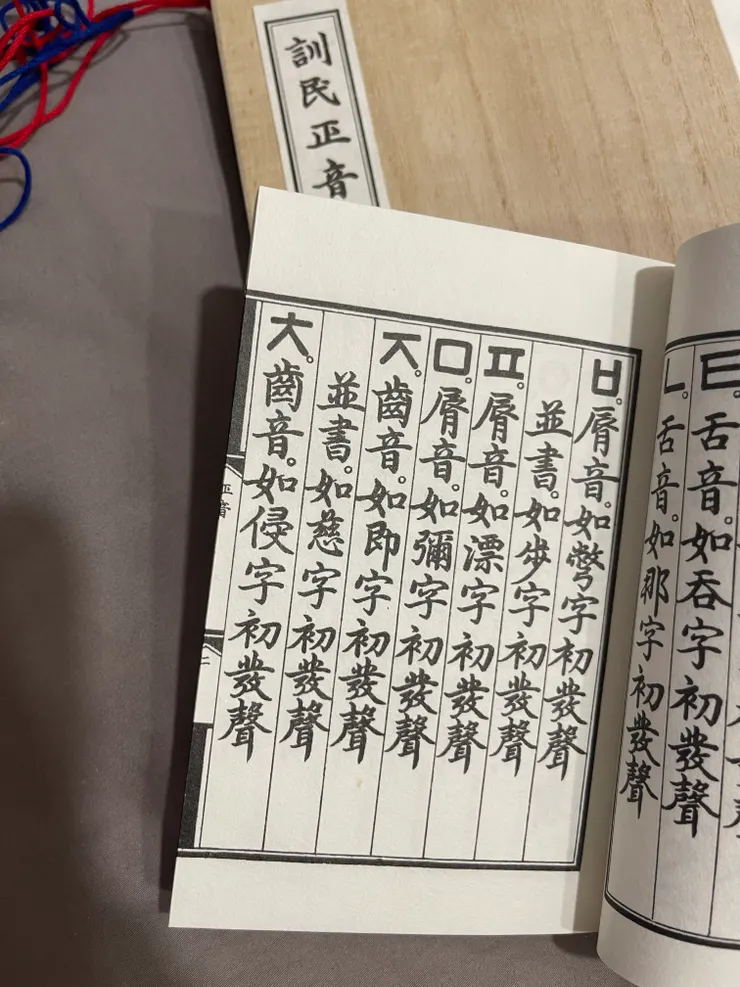 訓民正音
ㅌ。舌音。如呑字初發聲
ㄴ。舌音。如那字初發聲
ㅂ。脣音。如彆字初發聲
並書。如步字初發聲
ㅍ。脣音。如漂字初發聲
ㅁ。脣音。如彌字初發聲
ㅈ。齒音。如即字初發聲
並書。如慈字初發聲
ㅊ。齒音。如侵字初發聲
正音